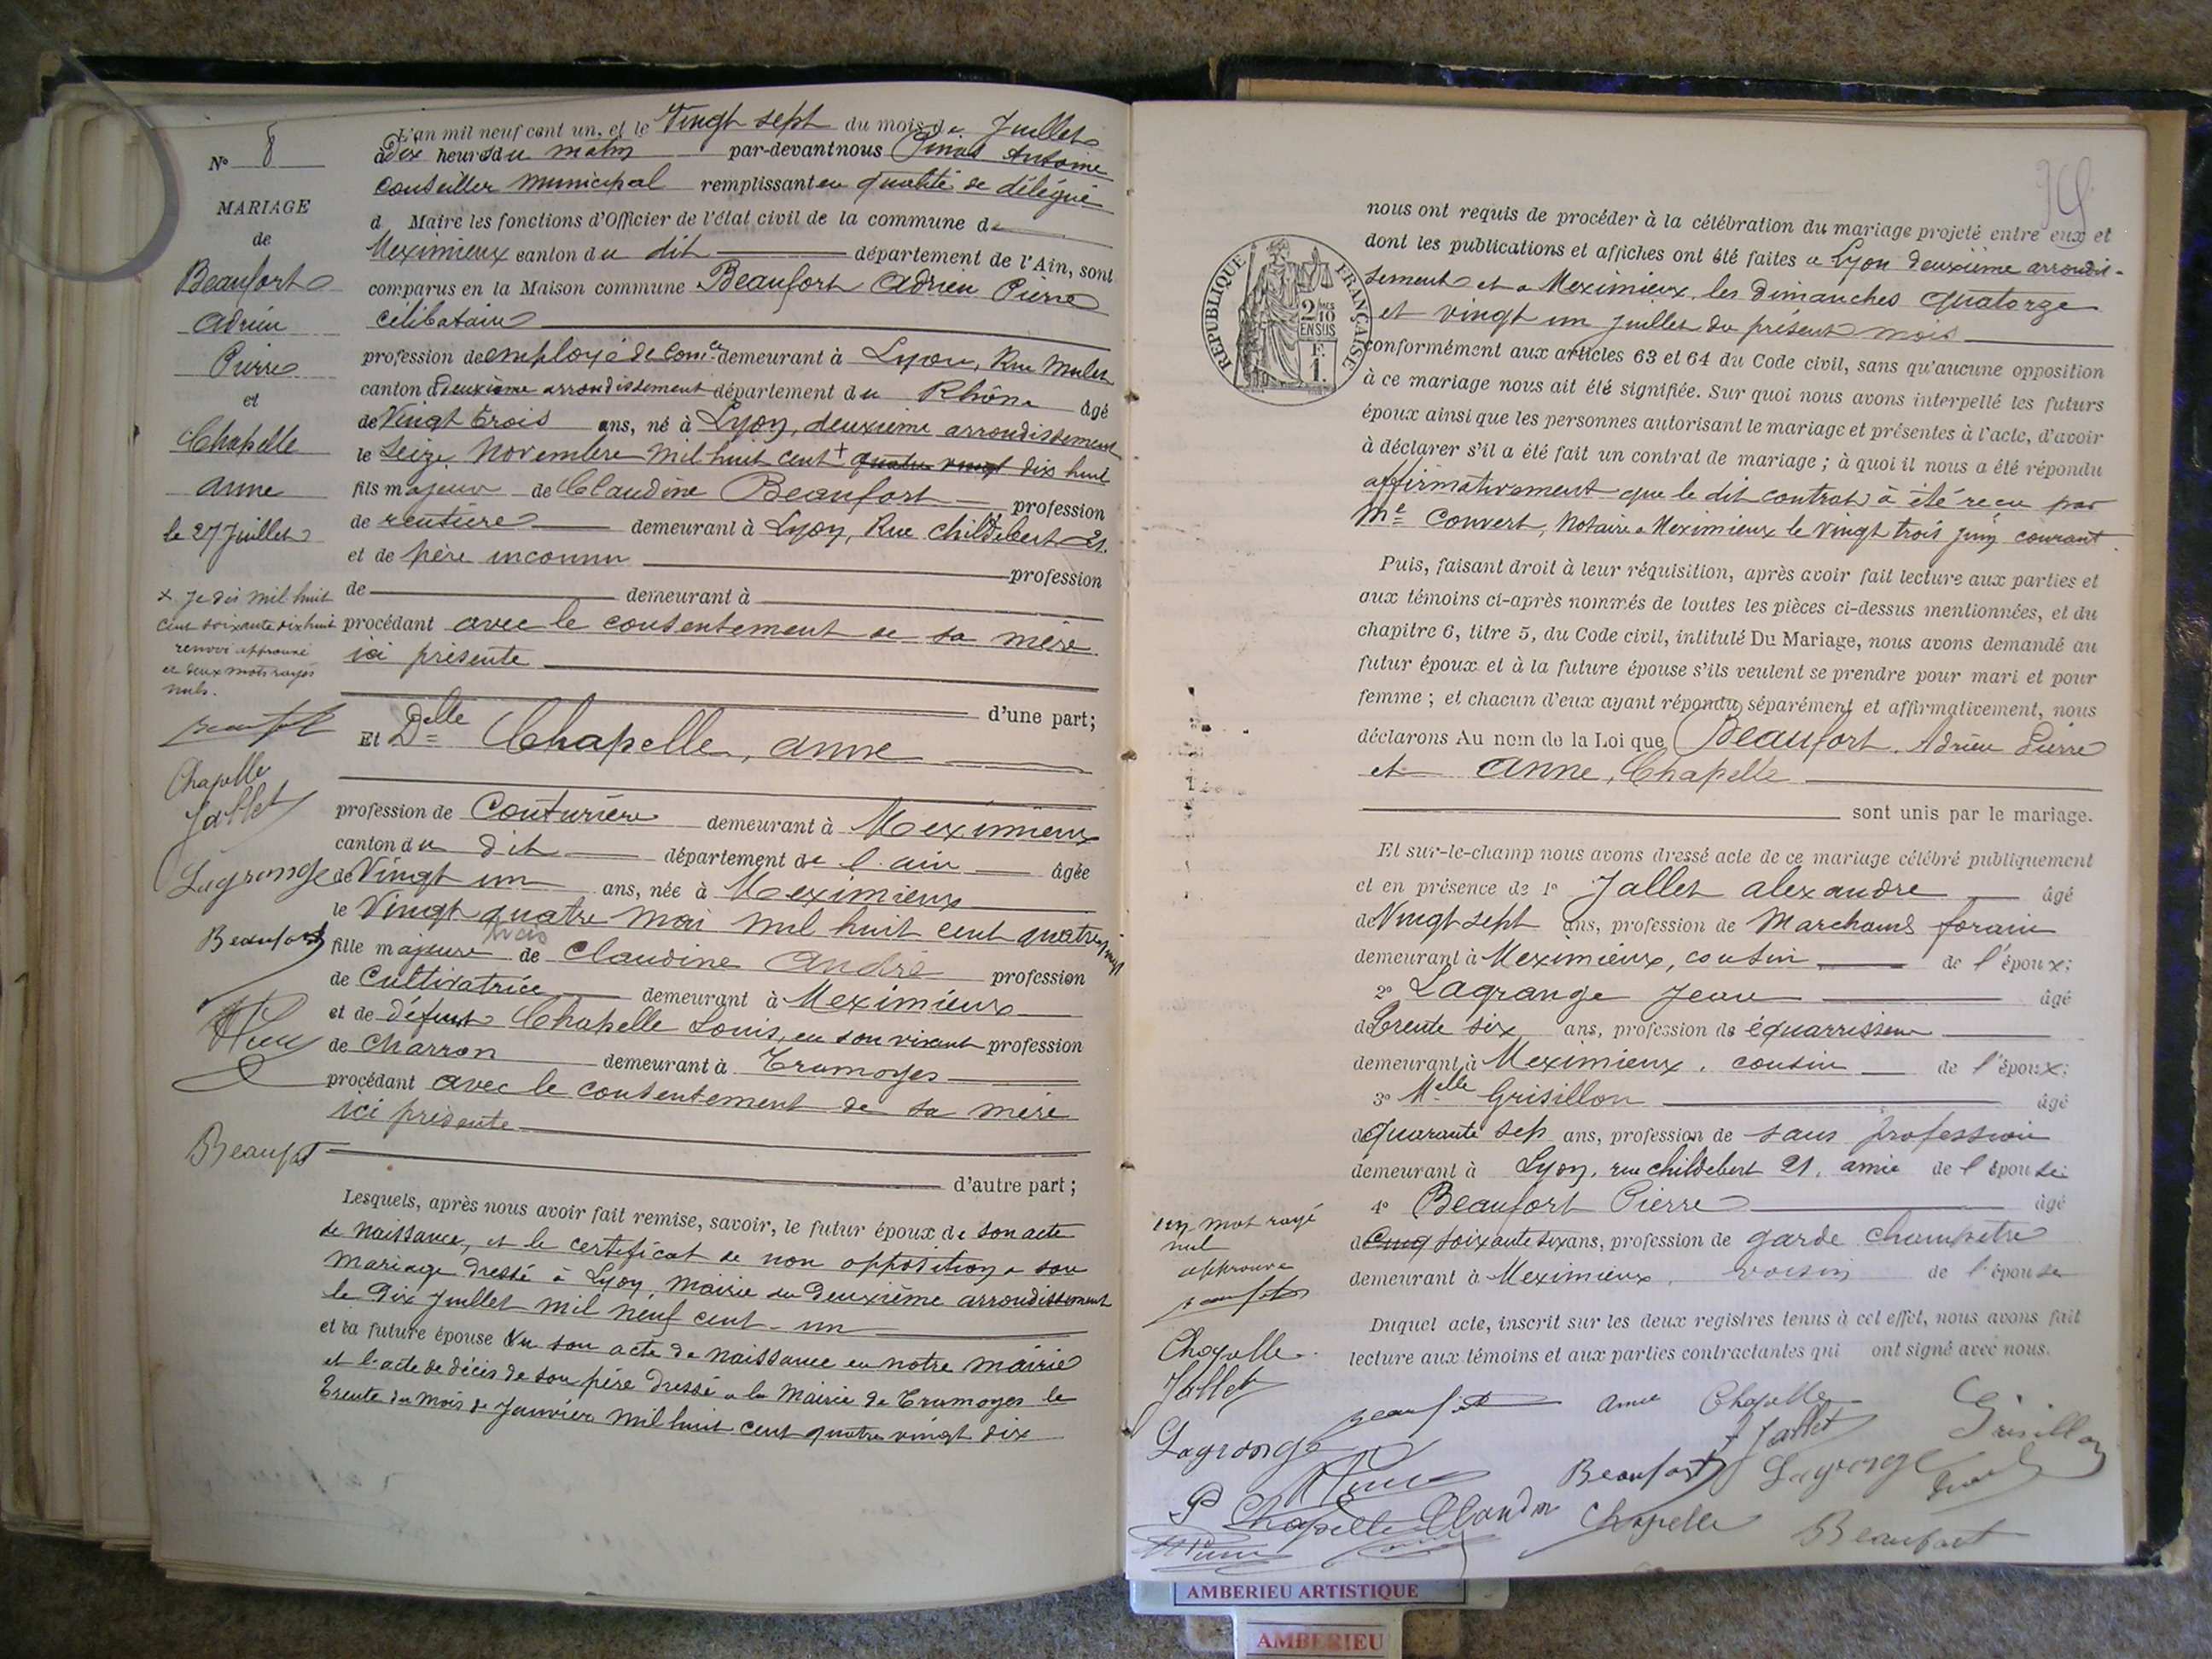 N° 8
MARIAGE
de
Beaufort
Adrien
Pierre
et
Chapelle
Anne
le 27 Juillet
x Je dis mil huit
cent soixante dix huit
renvoi approuvé
et deux mots rayés
nuls.
Beaufort
Chapelle
Jallet
Lagrange
Beaufort
Beaufort
L'an mil neuf cent un, et le Vingt sept du mois de Juillet
à Dix heures du matin par-devant nous Antoine
Conseiller Municipal remplissant en qualité de délégué
d Maire les fonctions d'Officier de l'état civil de la commune de
Meximieux canton du dit département de l'Ain, sont
comparus en la Maison commune Beaufort Adrien Pierre
célibataire
profession de employé de Comce demeurant à Lyon, Rue Mulet
canton Deuxième arrondissement département du Rhône âgé
de Vingt trois ans, né à Lyon, deuxième arrondissement
le Seize Novembre mil huit cent + quatre vingt dix huit
fils majeur de Claudine Beaufort profession
de rentière demeurant à Lyon, Rue Childebert 21.
et de père inconnu profession
de demeurant à
procédant avec le consentement de sa mère
ici présente
d'une part;
Et Delle Chapelle, Anne
profession de Couturière demeurant à Meximieux
canton du dit département de l'ain âgée
de Vingt un ans, née à Meximieux
le Vingt quatre mai mil huit cent quatre vingt
fille majeure de Claudine André profession
de Cultivatrice demeurant à Meximieux
et de défunt Chapelle Louis, en son vivant profession
de Charron demeurant à Tramoyes
procédant avec le consentement de sa mère
ici présente
d'autre part;
Lesquels, après nous avoir fait remise, savoir, le futur époux de son acte
de naissance, et le certificat de non opposition a son
mariage dressé à Lyon, mairie du Deuxième arrondissement
le Dix Juillet mil neuf cent un
et la future épouse Vu son acte de naissance en notre mairie
et l'acte de décès de son père dressé a la Mairie de Tramoyes le
Trente du mois de Janvier mil huit cent quatre vingt dix
RÉPUBLIQUE FRANÇAISE
2/10
EN SUS
F.
1.
nous ont requis de procéder à la célébration du mariage projeté entre eux et
dont les publications et affiches ont été faites a Lyon deuxième arrondis-
sement et a Meximieux, les dimanches quatorze
et vingt un juillet du présent mois
conformément aux articles 63 et 64 du Code civil, sans qu'aucune opposition
à ce mariage nous ait été signifiée. Sur quoi nous avons interpellé les futurs
époux ainsi que les personnes autorisant le mariage et présentes à l'acte, d'avoir
à déclarer s'il a été fait un contrat de mariage; à quoi il nous a été répondu
affirmativement que le dit contrat à été reçu par
Me Convert, Notaire a Meximieux le vingt trois juin courant.
Puis, faisant droit à leur réquisition, après avoir fait lecture aux parties et
aux témoins ci-après nommés de toutes les pièces ci-dessus mentionnées, et du
chapitre 6, titre 5, du Code civil, intitulé Du Mariage, nous avons demandé au
futur époux et à la future épouse s'ils veulent se prendre pour mari et pour
femme; et chacun d'eux ayant répondu séparément et affirmativement, nous
déclarons Au nom de la Loi que Beaufort, Adrien Pierre
et Anne, Chapelle
sont unis par le mariage.
Et sur-le-champ nous avons dressé acte de ce mariage célébré publiquement
et en présence de 1° Jallet alexandre âgé
de Vingt sept ans, profession de Marchand forain
demeurant à Meximieux, cousin de l'époux;
2° Lagrange Jean âgé
de Trente six ans, profession de équarrisseur
demeurant à Meximieux, cousin de l'époux;
3° Melle Grisillon âgé
de quarante sep ans, profession de sans profession
demeurant à Lyon, rue Childebert 21, amie de l'épouse;
4° Beaufort Pierre âgé
de cinq soixante six ans, profession de garde champêtre
demeurant à Meximieux, voisin de l'épouse
Duquel acte, inscrit sur les deux registres tenus à cet effet, nous avons fait
lecture aux témoins et aux parties contractantes qui ont signé avec nous.
un mot rayé
nul
approuvé
Beaufort
Chapelle
Jallet
Lagrange
Beaufort Anne Chapelle
Jallet Grisillon
Beaufort Lagrange
P Chapelle Claudin Chapelle Beaufort
AMBERIEU ARTISTIQUE
AMBERIEU